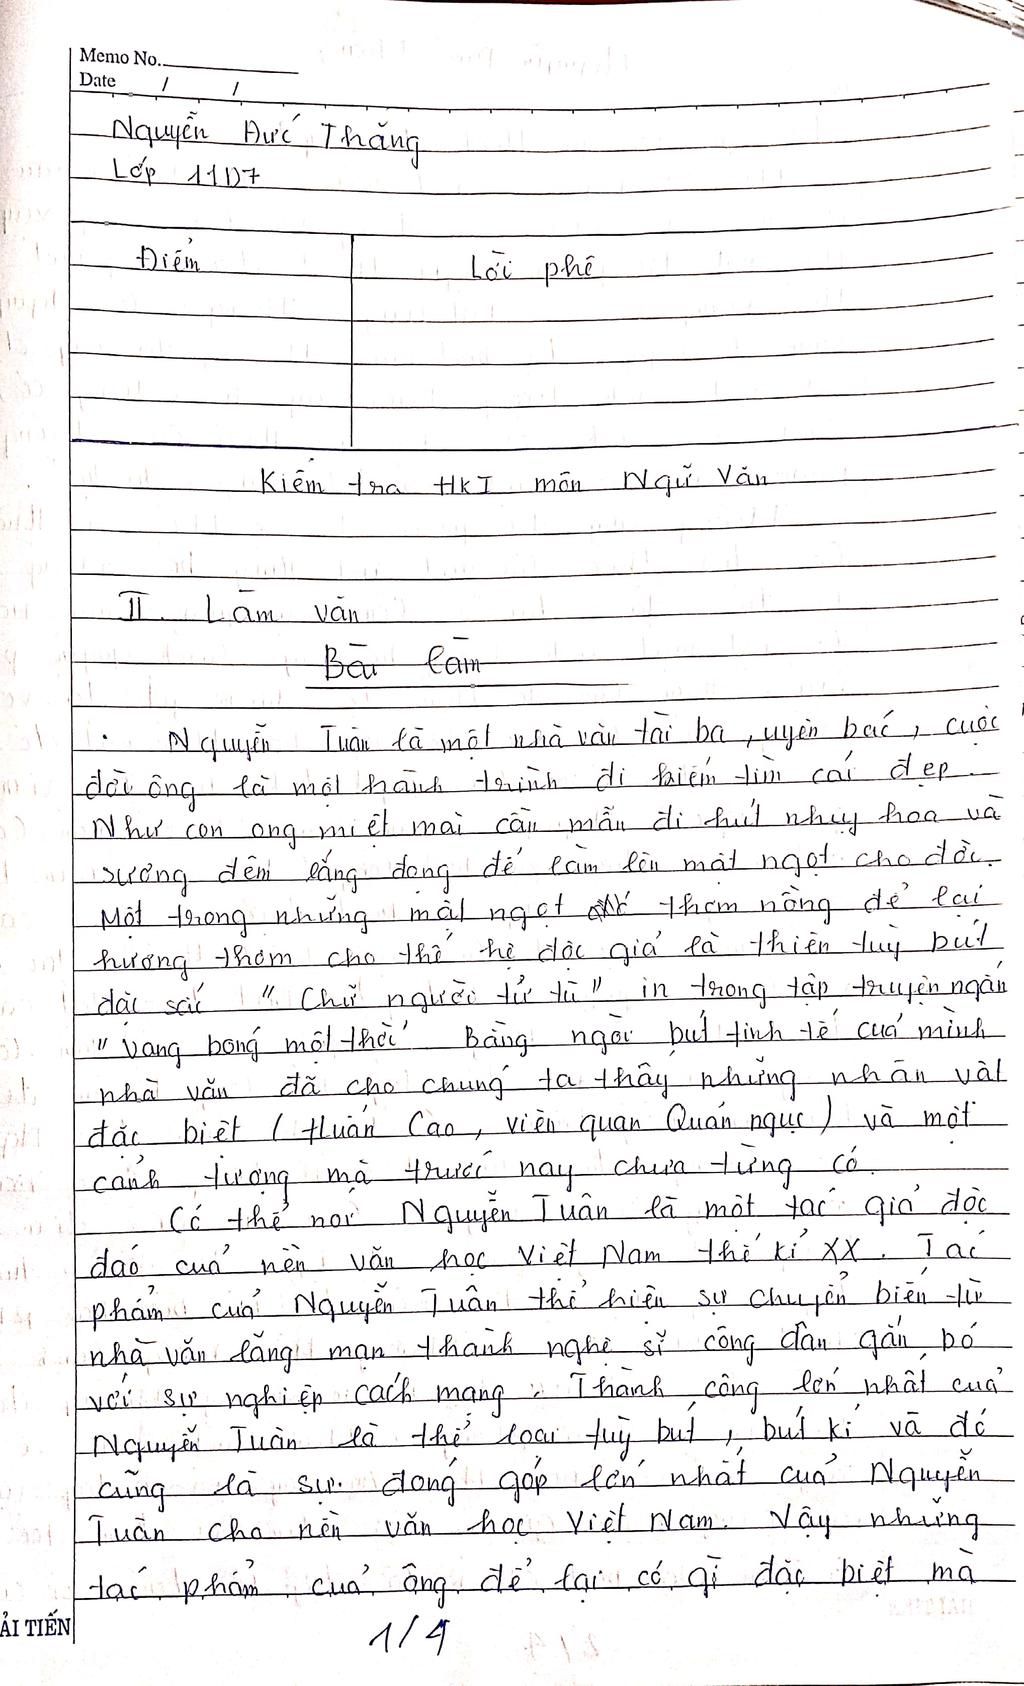 Memo No.
Date / /
Nguyễn Đức Thắng
Lớp 11D7
Điểm Lời phê
Kiểm tra HKI môn Ngữ Văn
II. Làm văn
Bài làm
Nguyễn Tuân là một nhà văn tài ba, uyên bác, cuộc
đời ông là một hành trình đi kiếm tìm cái đẹp.
Như con ong miệt mài cần mẫn đi hút nhụy hoa và
sương đêm lắng đọng để làm lên mật ngọt cho đời.
Một trong những mật ngọt thơm nồng để lại
hương thơm cho thế hệ độc giả là thiên tuỳ bút
đặc sắc "Chữ người tử tù" in trong tập truyện ngắn
"Vang bóng một thời" Bằng ngòi bút tinh tế của mình
nhà văn đã cho chúng ta thấy những nhân vật
đặc biệt (Huấn Cao, viên quan Quản ngục) và một
cảnh tượng mà trước nay chưa từng có.
Có thể nói Nguyễn Tuân là một tác giả độc
đáo của nền văn học Việt Nam thế kỉ XX. Tác
phẩm của Nguyễn Tuân thể hiện sự chuyển biến từ
nhà văn lãng mạn thành nghệ sĩ công dân gắn bó
với sự nghiệp cách mạng. Thành công lớn nhất của
Nguyễn Tuân là thể loại tuỳ bút, bút kí và đó
cũng là sự đóng góp lớn nhất của Nguyễn
Tuân cho nền văn học Việt Nam. Vậy những
tác phẩm của ông để lại có gì đặc biệt mà
ẢI TIẾN
1/4